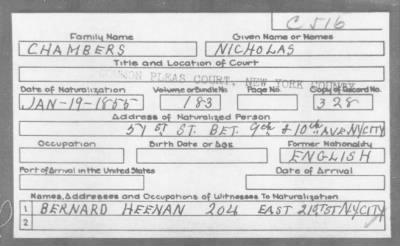 C 516
Family Name Given Name or Names
CHAMBERS NICHOLAS
Title and Location of Court
COMMON PLEAS COURT, NEW YORK COUNTY
Date of Naturalization Volume or Bundle No. Page No. Copy of Record No.
JAN-19-1855 183 328
Address of Naturalized Person
57 ST ST. BET. 9th & 10th AVE NYCITY
Occupation Birth Date or Age Former Nationality
ENGLISH
Port of Arrival in the United States Date of Arrival
Names, Addresses and Occupations of Witnesses To Naturalization
1 BERNARD HEENAN 204 EAST 21ST ST NYCITY
2